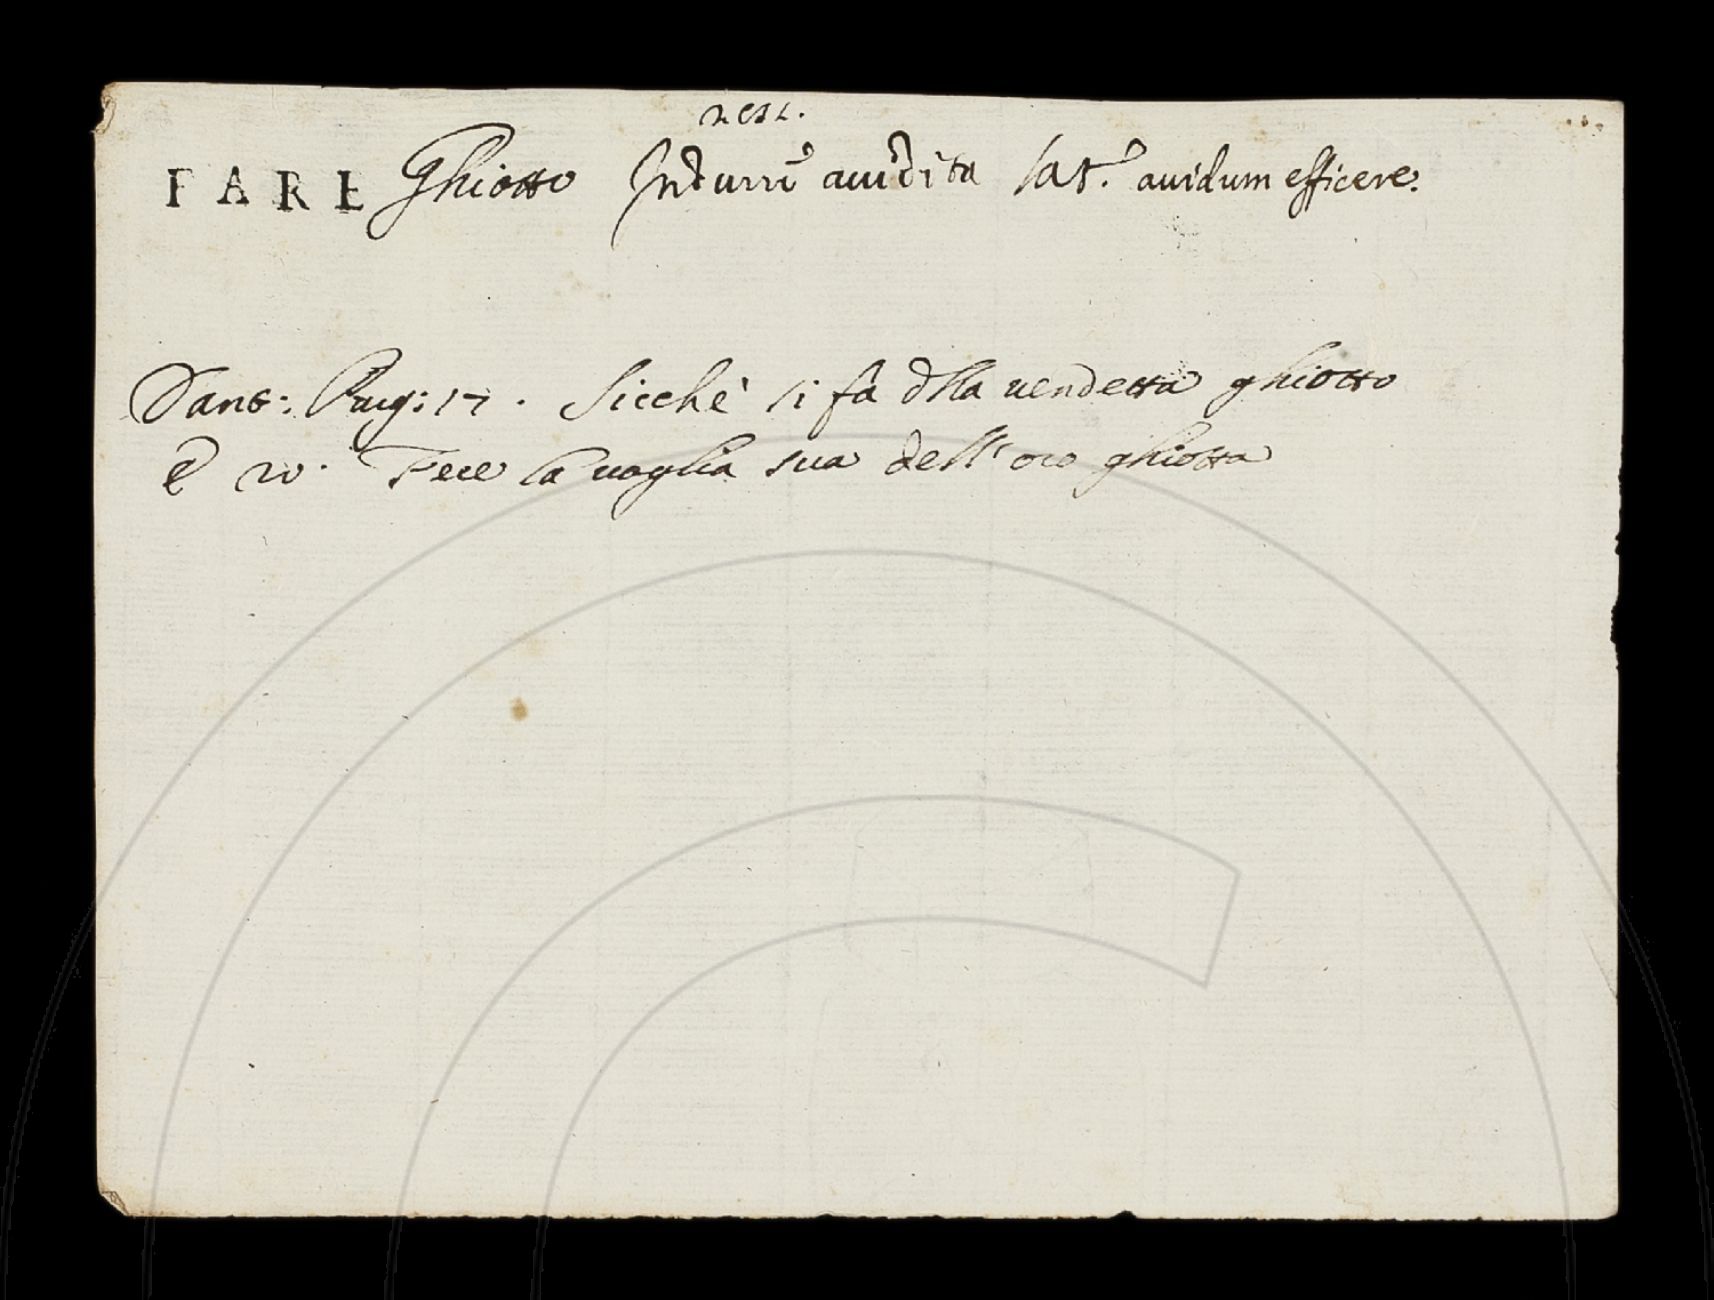 nest.
FARE Ghiotto Indurrē auidità lat.° auidum efficere.
Dant: Purg: 17. Sicchè si fà dlla uendetta ghiotto
E 20. Fece la uoglia sua dell' oro ghiotta